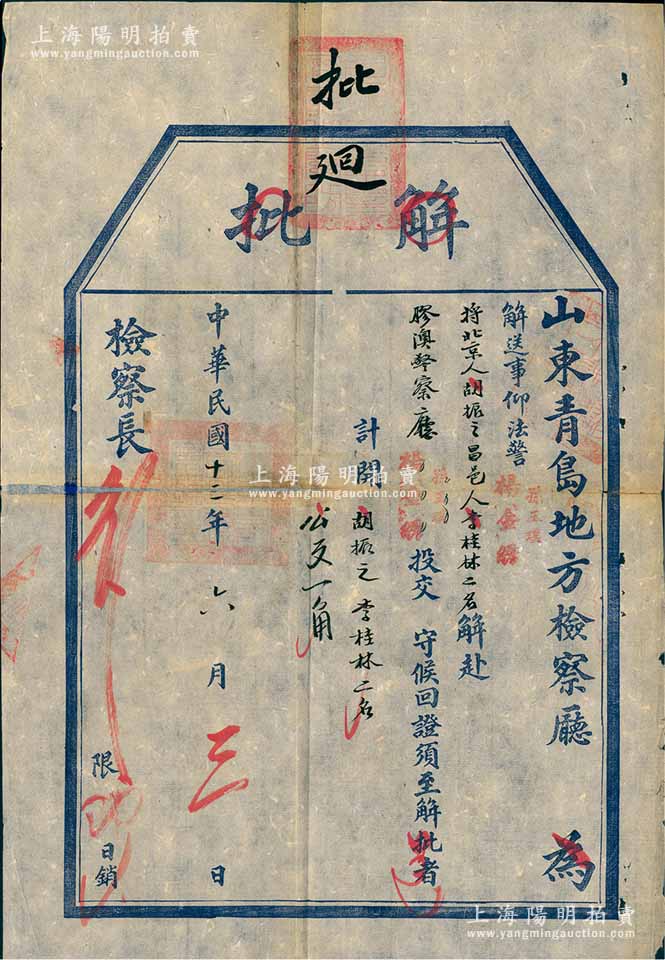 上海陽明拍賣
www.yangmingauction.com
批廻
解批
山東青島地方檢察廳 為
解送事仰法警 楊金鎔
將北京人胡振之昌邑人李桂林二名解赴
膠澳警察廳 投交 守候回證須至解批者
計開 胡振之 李桂林二名
公文一角
中華民國十二年六月三日
檢察長
限 日銷
上海陽明拍賣
www.yangmingauction.com
上海陽明拍賣
www.yangmingauction.com